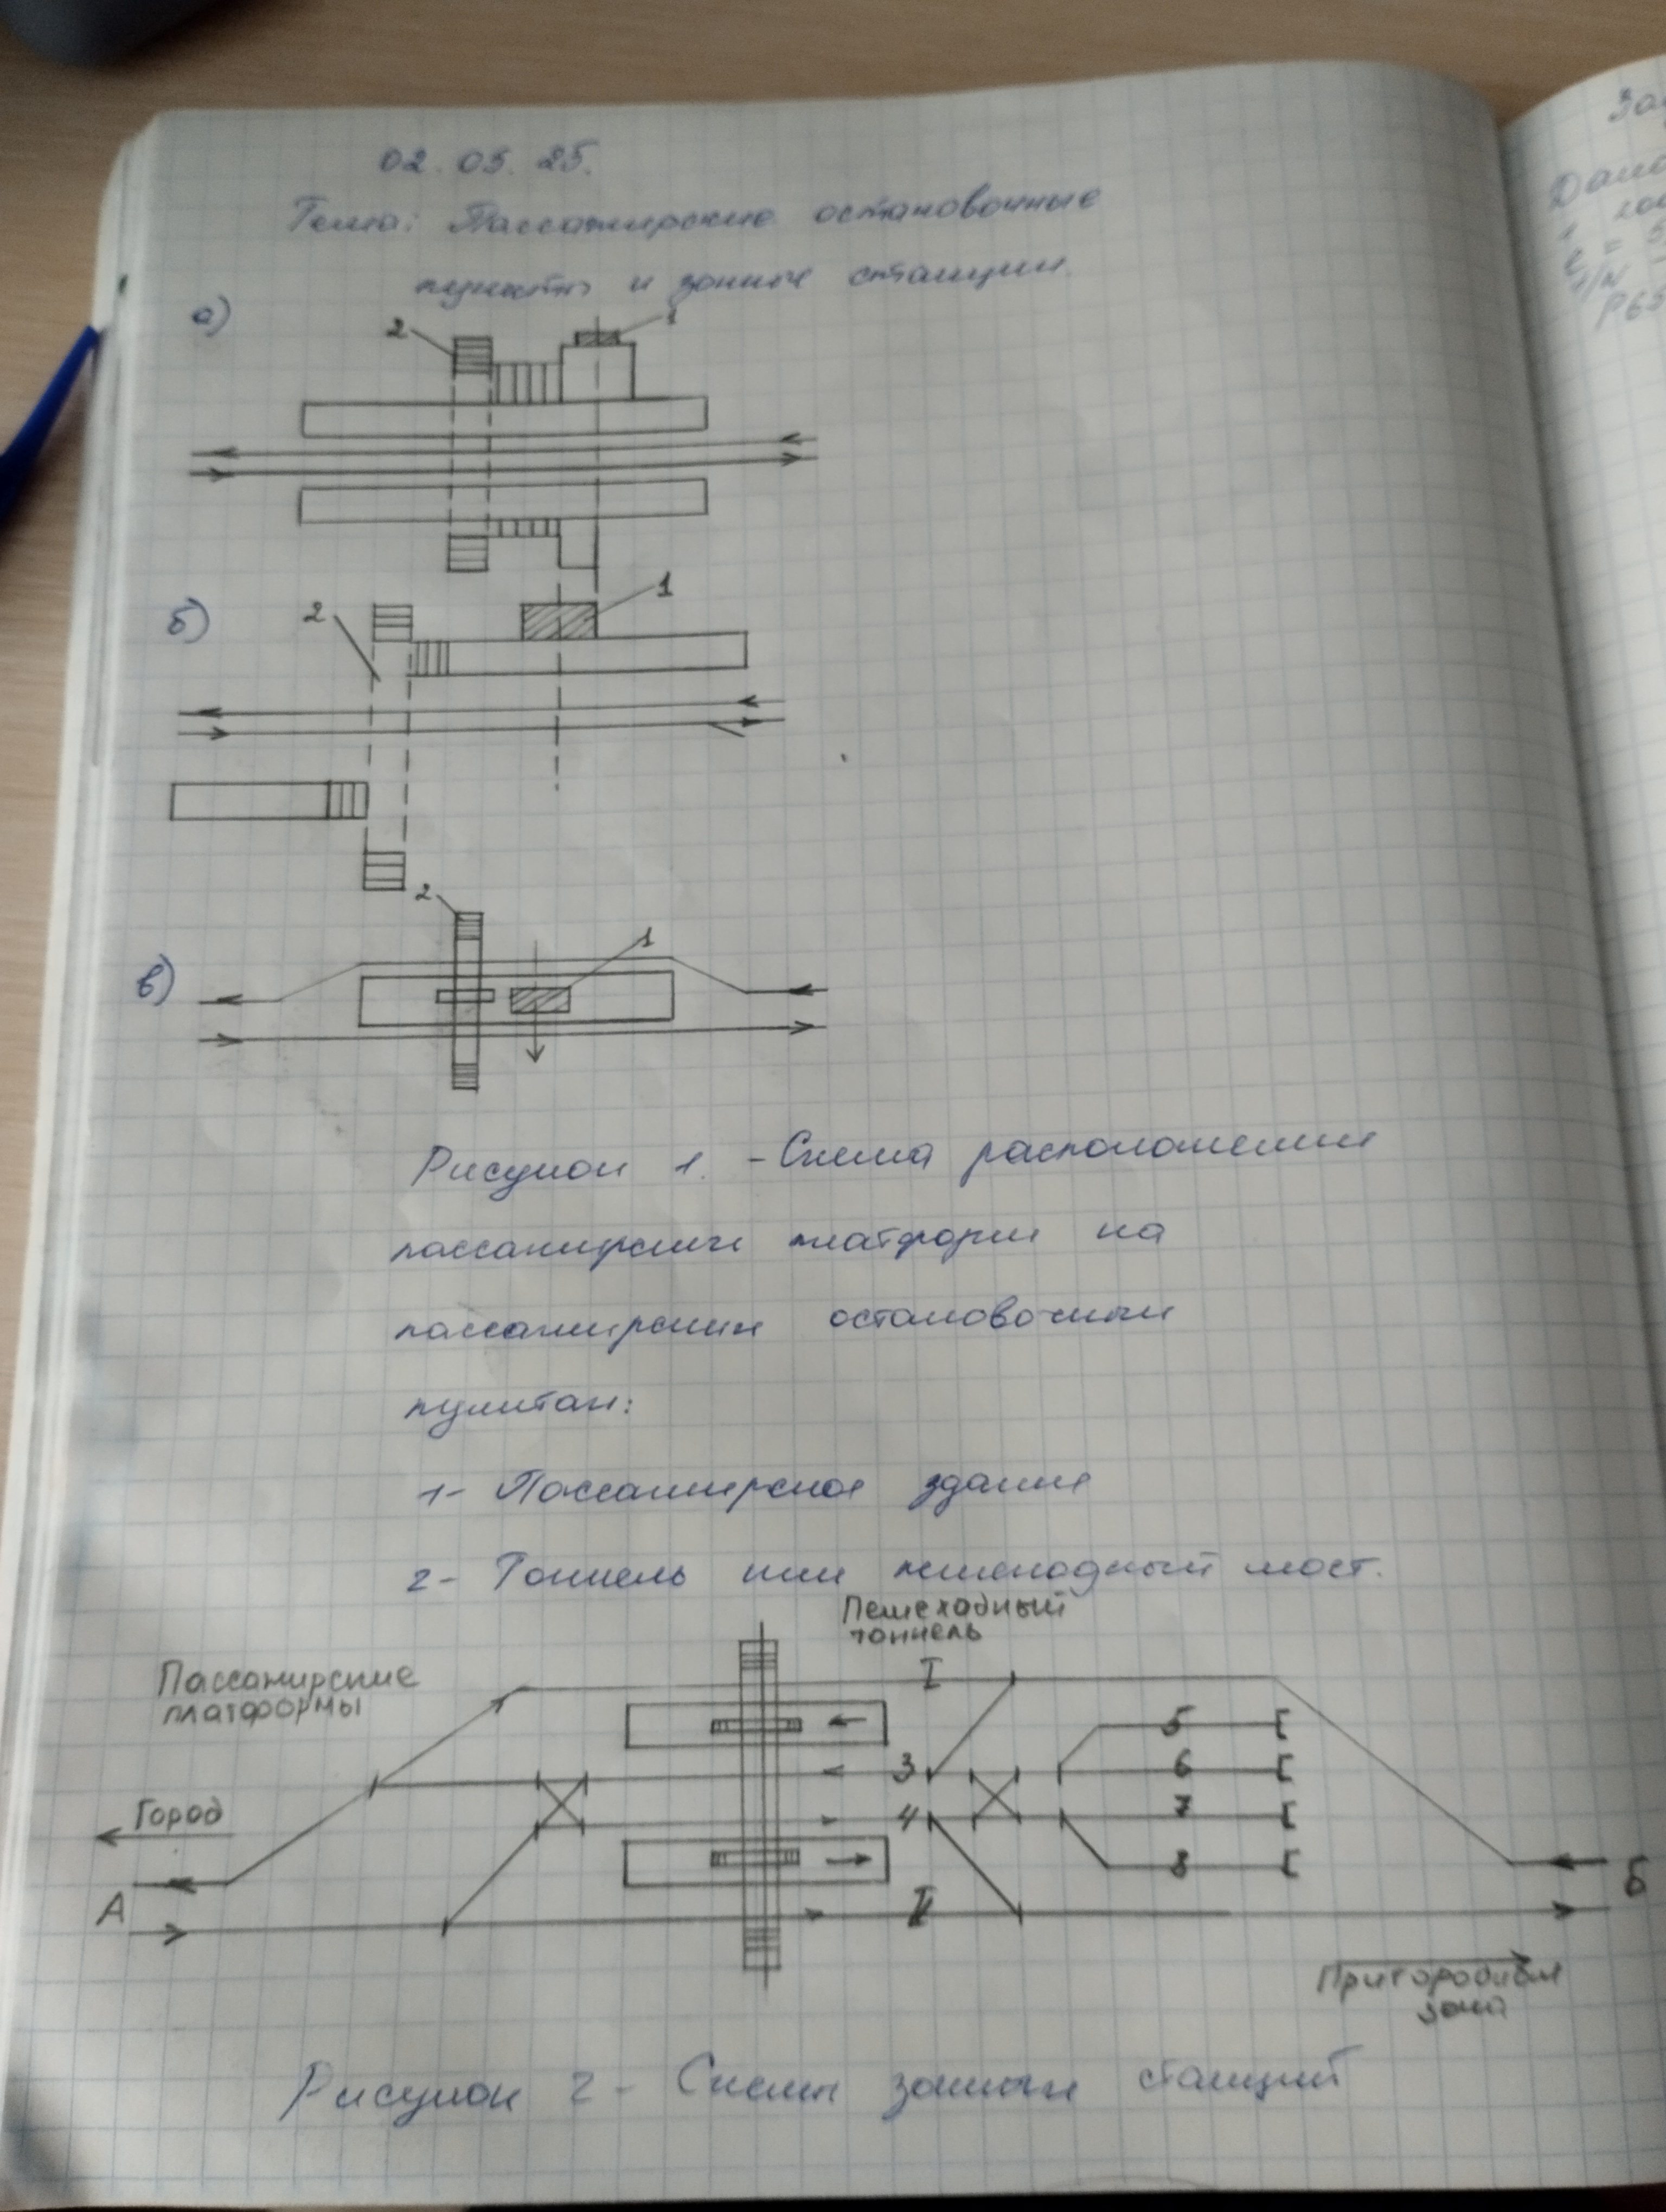 02.05.25.
Тема: Пассажирские остановочные
пункты и зонные станции.
а)
2
1
б)
2
1
2
в)
1
Рисунок 1. - Схема расположения
пассажирских платформ на
пассажирских остановочных
пунктах:
1- Пассажирское здание
2- Тоннель или пешеходный мост.
Пешеходный
тоннель
Пассажирские
платформы
I
5
3
6
Город
4
7
8
А
II
Б
Пригородная
зона
Рисунок 2 - Схемы зонных станций
За
Дано